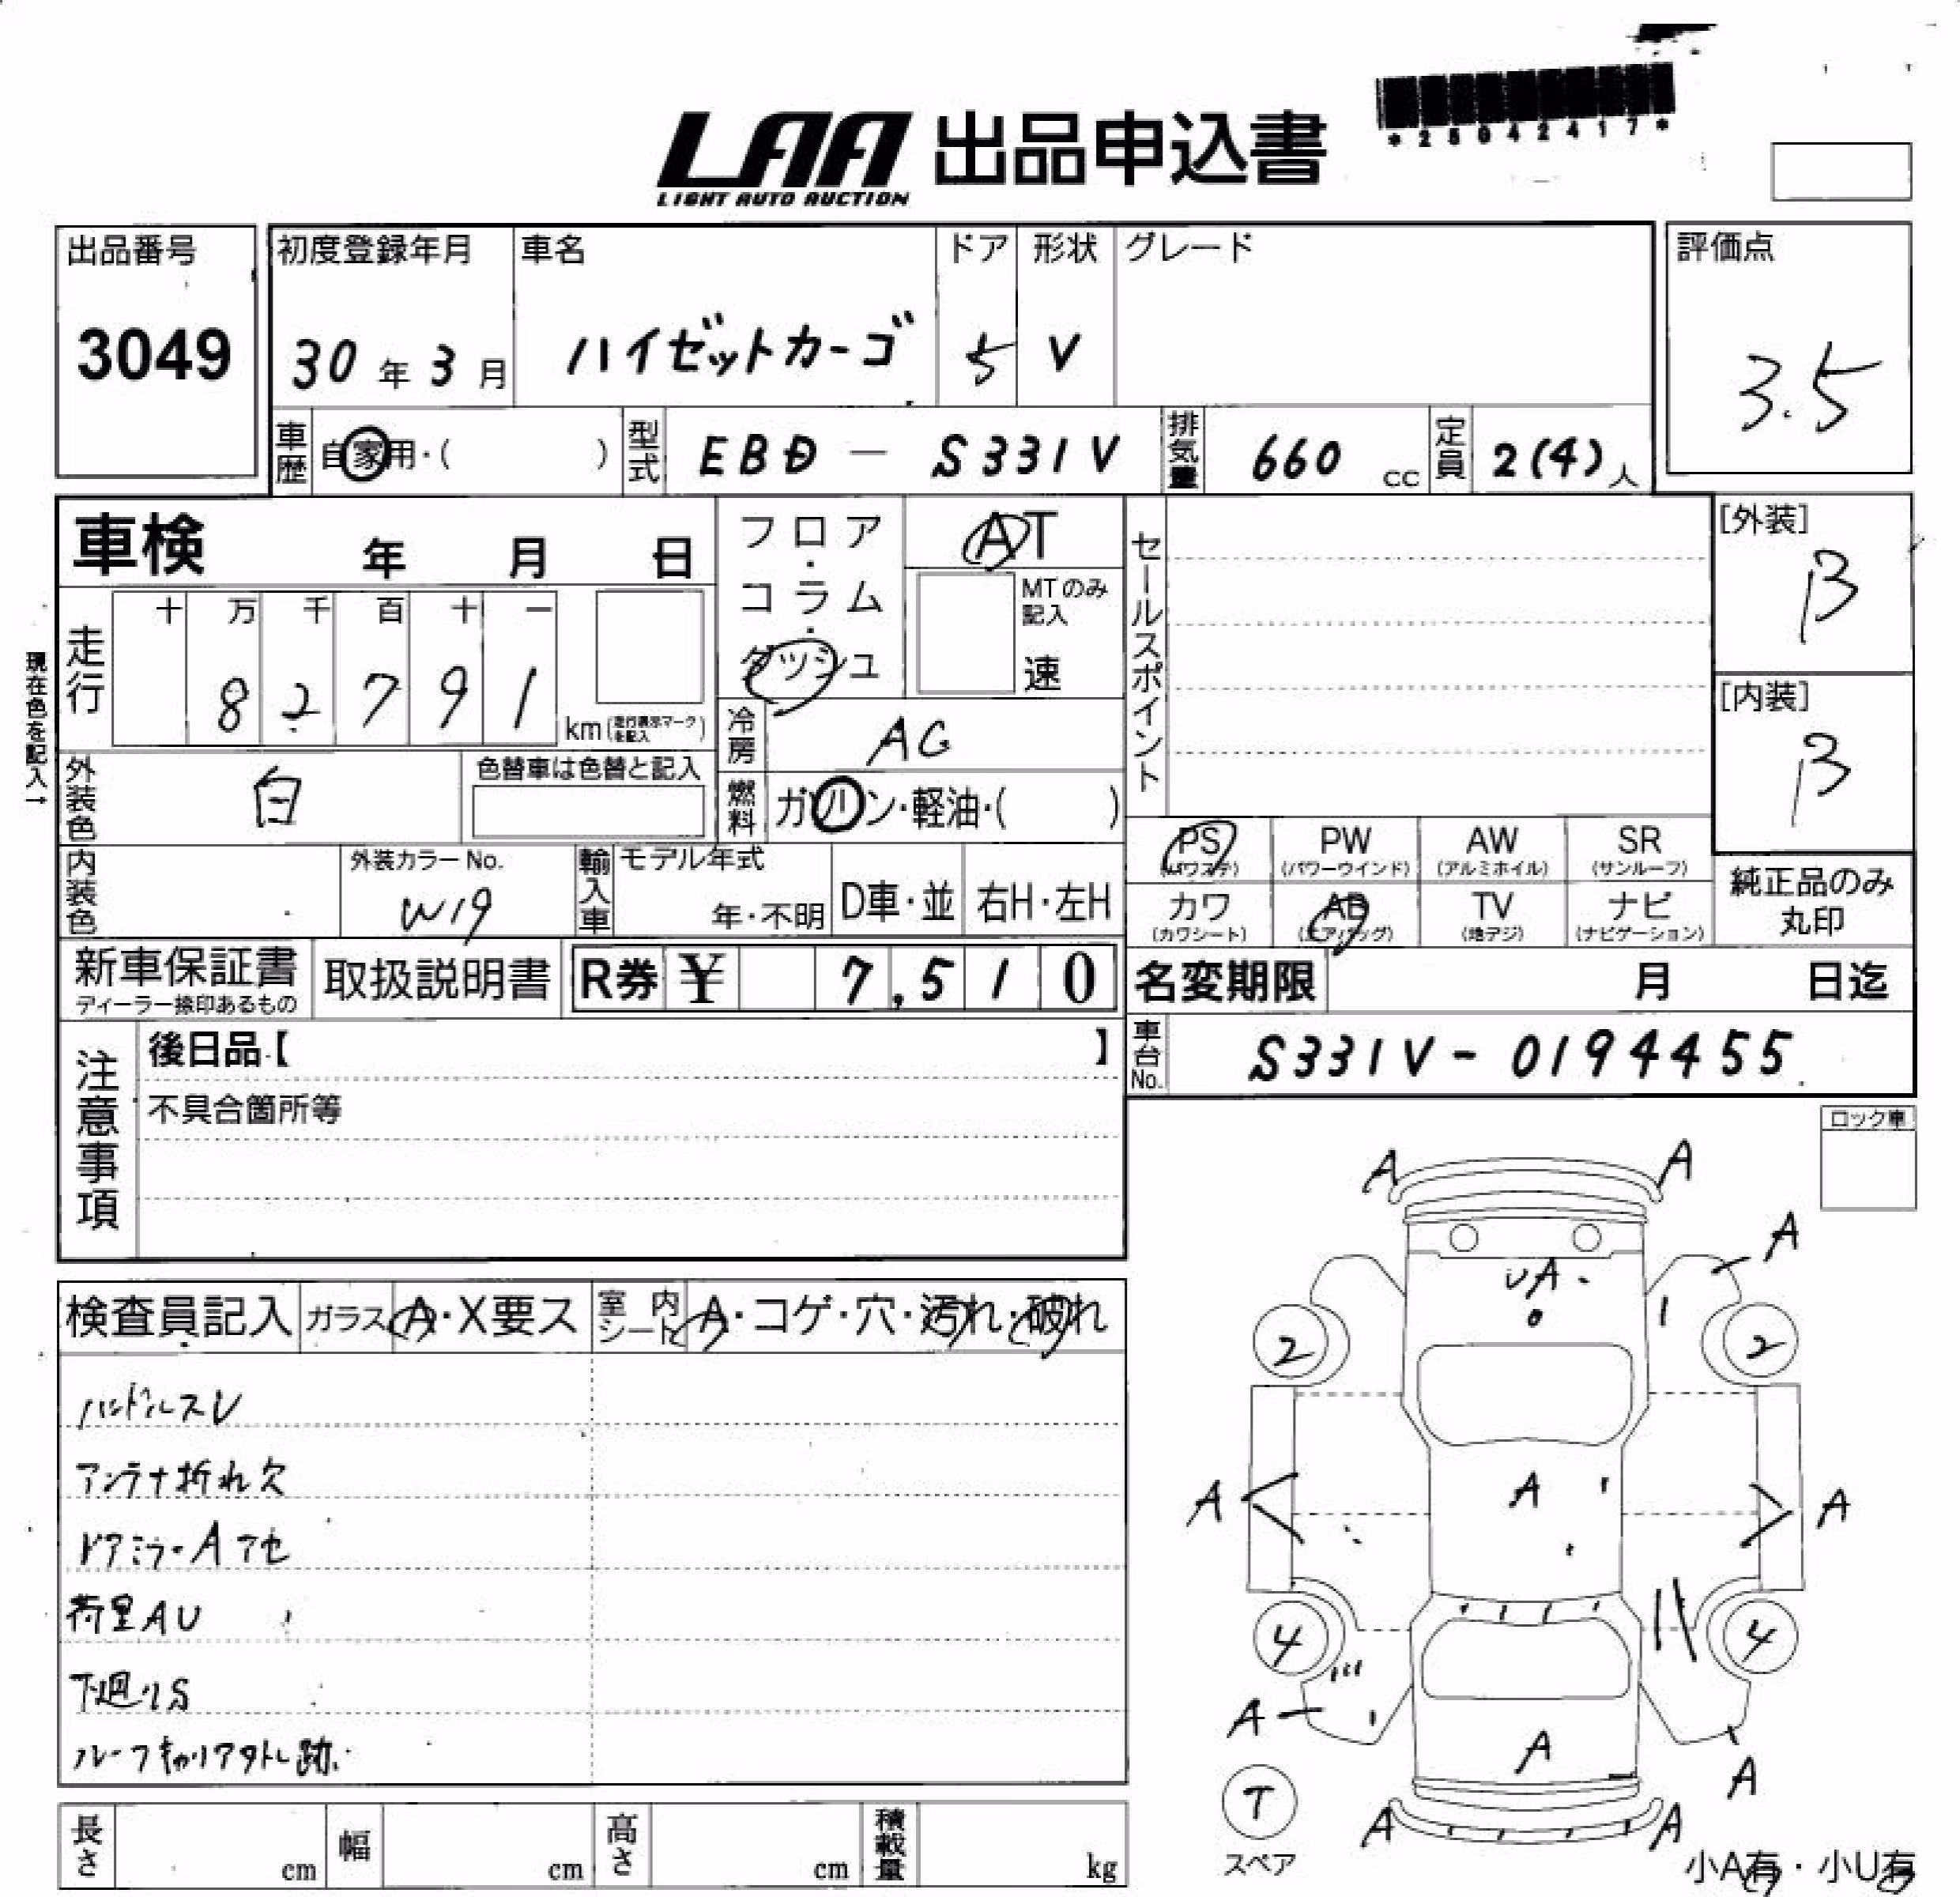 LAA 出品申込書
LIGHT AUTO AUCTION
*25042417*
出品番号
3049
初度登録年月
30年3月
車名
ハイゼットカーゴ
ドア
5
形状
V
グレード
評価点
3.5
車歴
自家用・( )
型式
EBD - S331V
排気量
660 cc
定員
2(4)人
車検 年 月 日
フロア・コラム・ダッシュ
AT
MTのみ記入
速
セールスポイント
[外装]
B
[内装]
B
現在色を記入→
走行
十 万 千 百 十 一
8 2 7 9 1
km(走行表示マークを記入)
冷房
AC
外装色
白
色替車は色替と記入
燃料
ガソリン・軽油・( )
内装色
外装カラーNo.
W19
輸入車
モデル年式
年・不明
D車・並
右H・左H
PS
(パワステ)
PW
(パワーウインド)
AW
(アルミホイル)
SR
(サンルーフ)
カワ
(カワシート)
AB
(エアバッグ)
TV
(地デジ)
ナビ
(ナビゲーション)
純正品のみ
丸印
新車保証書
ディーラー捺印あるもの
取扱説明書
R券 ¥ 7,510
名変期限 月 日迄
注意事項
後日品【 】
不具合箇所等
車台No.
S331V-0194455
ロック車
検査員記入
ガラス
A・X要ス
室内シート
A・コゲ・穴・汚れ・破れ
ハンドルスレ
アンテナ折れ欠
ドアミラーAアセ
荷室AU
下廻りS
ルーフキャリア外し跡
A A
A
UA
2 2
A A A
4 4
A
A
A
T
スペア
A A
小A有・小U有
長さ cm
幅 cm
高さ cm
積載量 kg